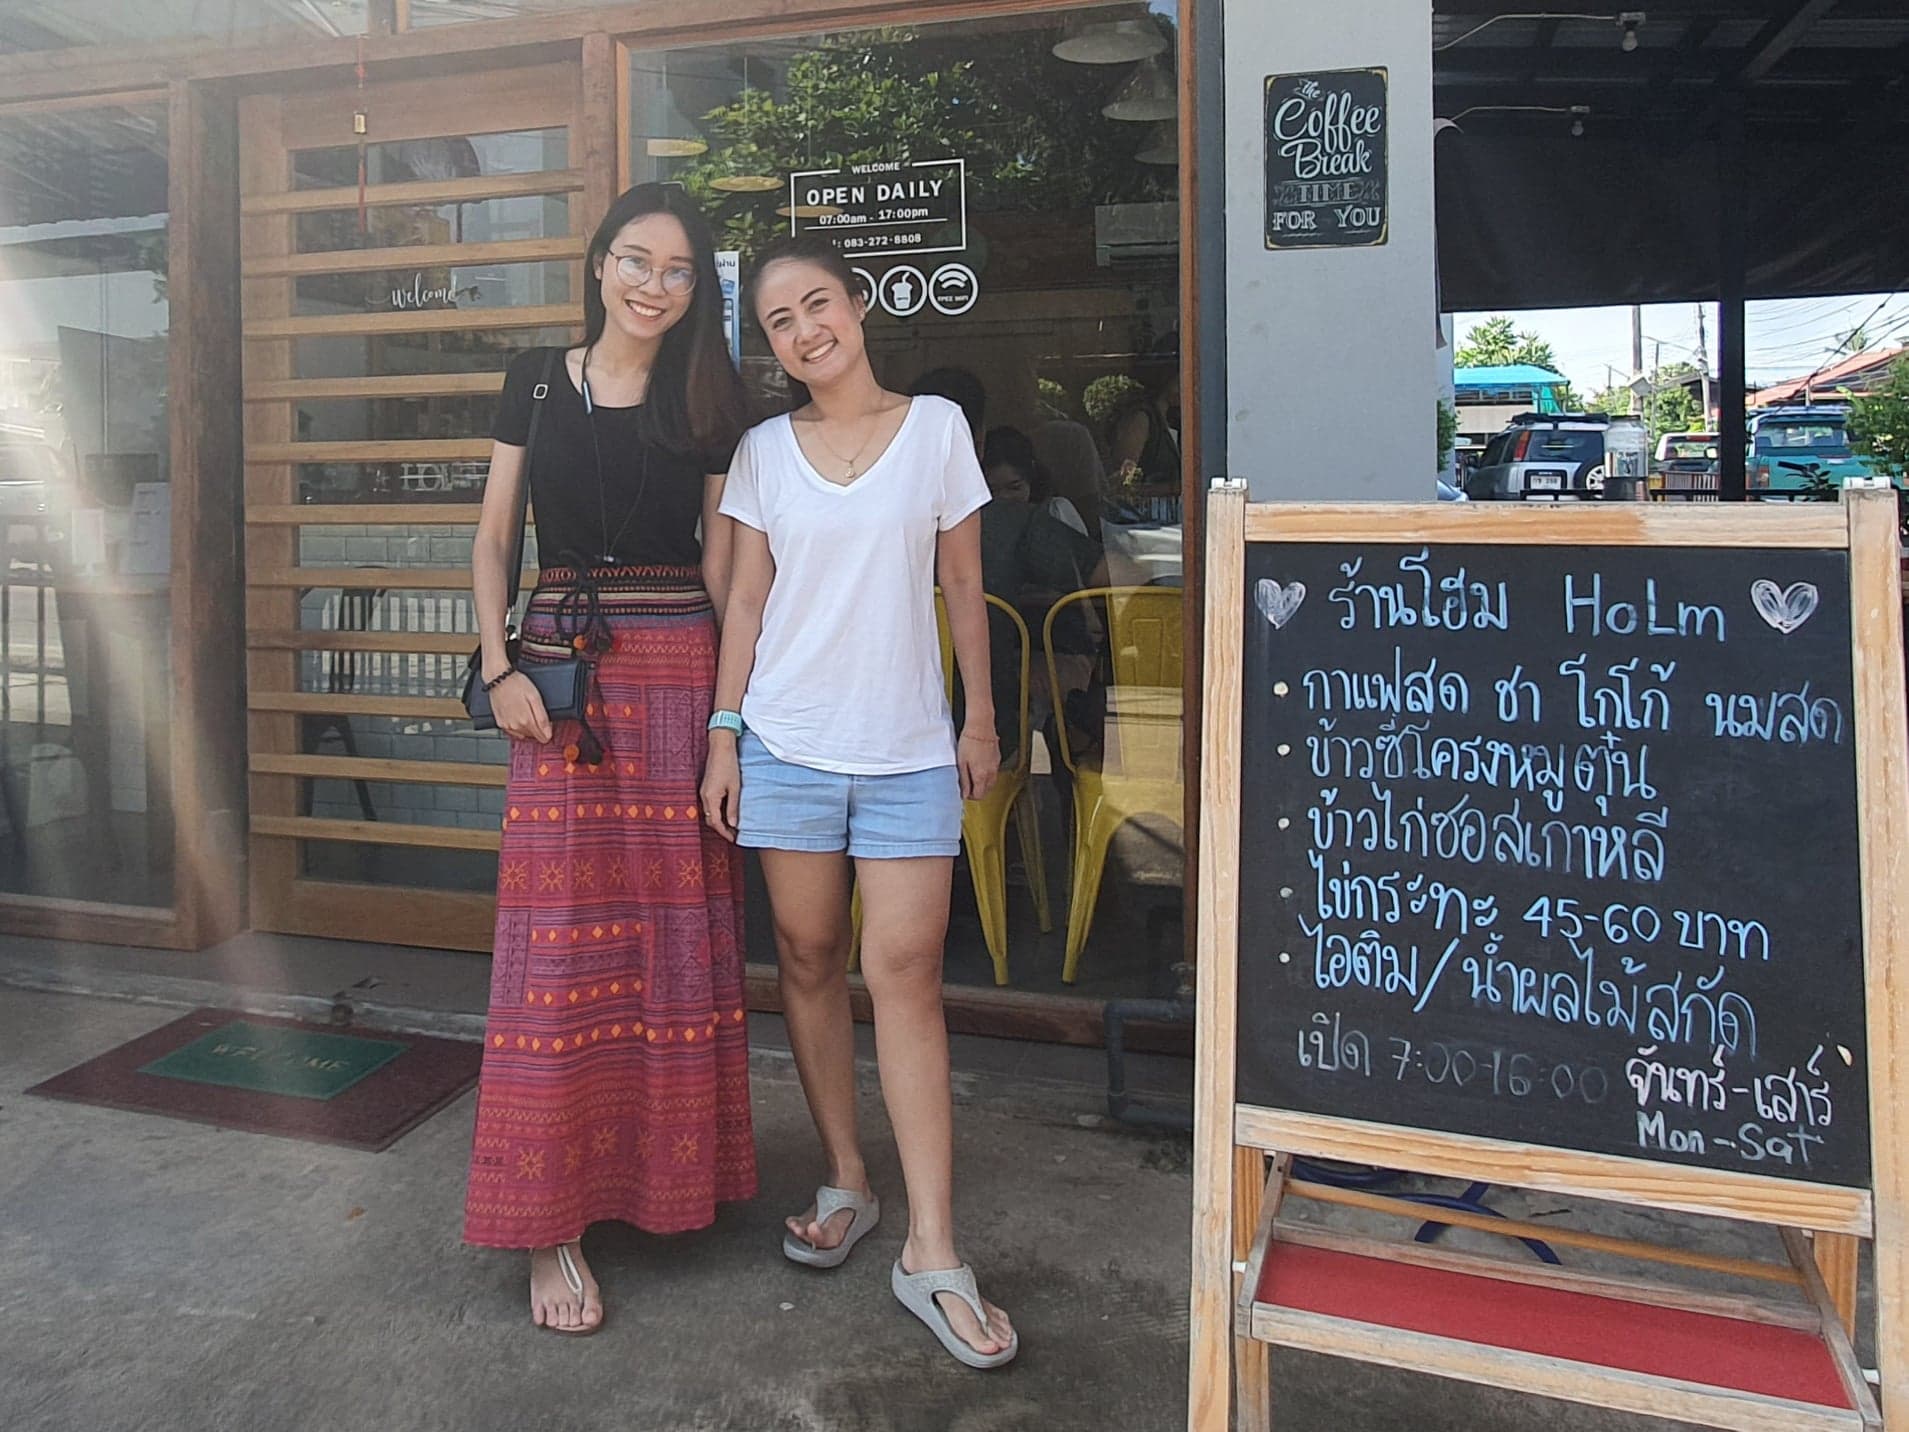 WELCOME
OPEN DAILY
07:00am - 17:00pm
: 083-272-8808
FREE WIFI
welcome
the
Coffee
Break
TIME
FOR YOU
WELCOME
ร้านโฮม HoLm
กาแฟสด ชา โกโก้ นมสด
ข้าวซี่โครงหมูตุ๋น
ข้าวไก่ซอสเกาหลี
ไข่กระทะ 45-60 บาท
ไอติม/น้ำผลไม้สกัด
เปิด 7:00-16:00 จันทร์-เสาร์
Mon-Sat